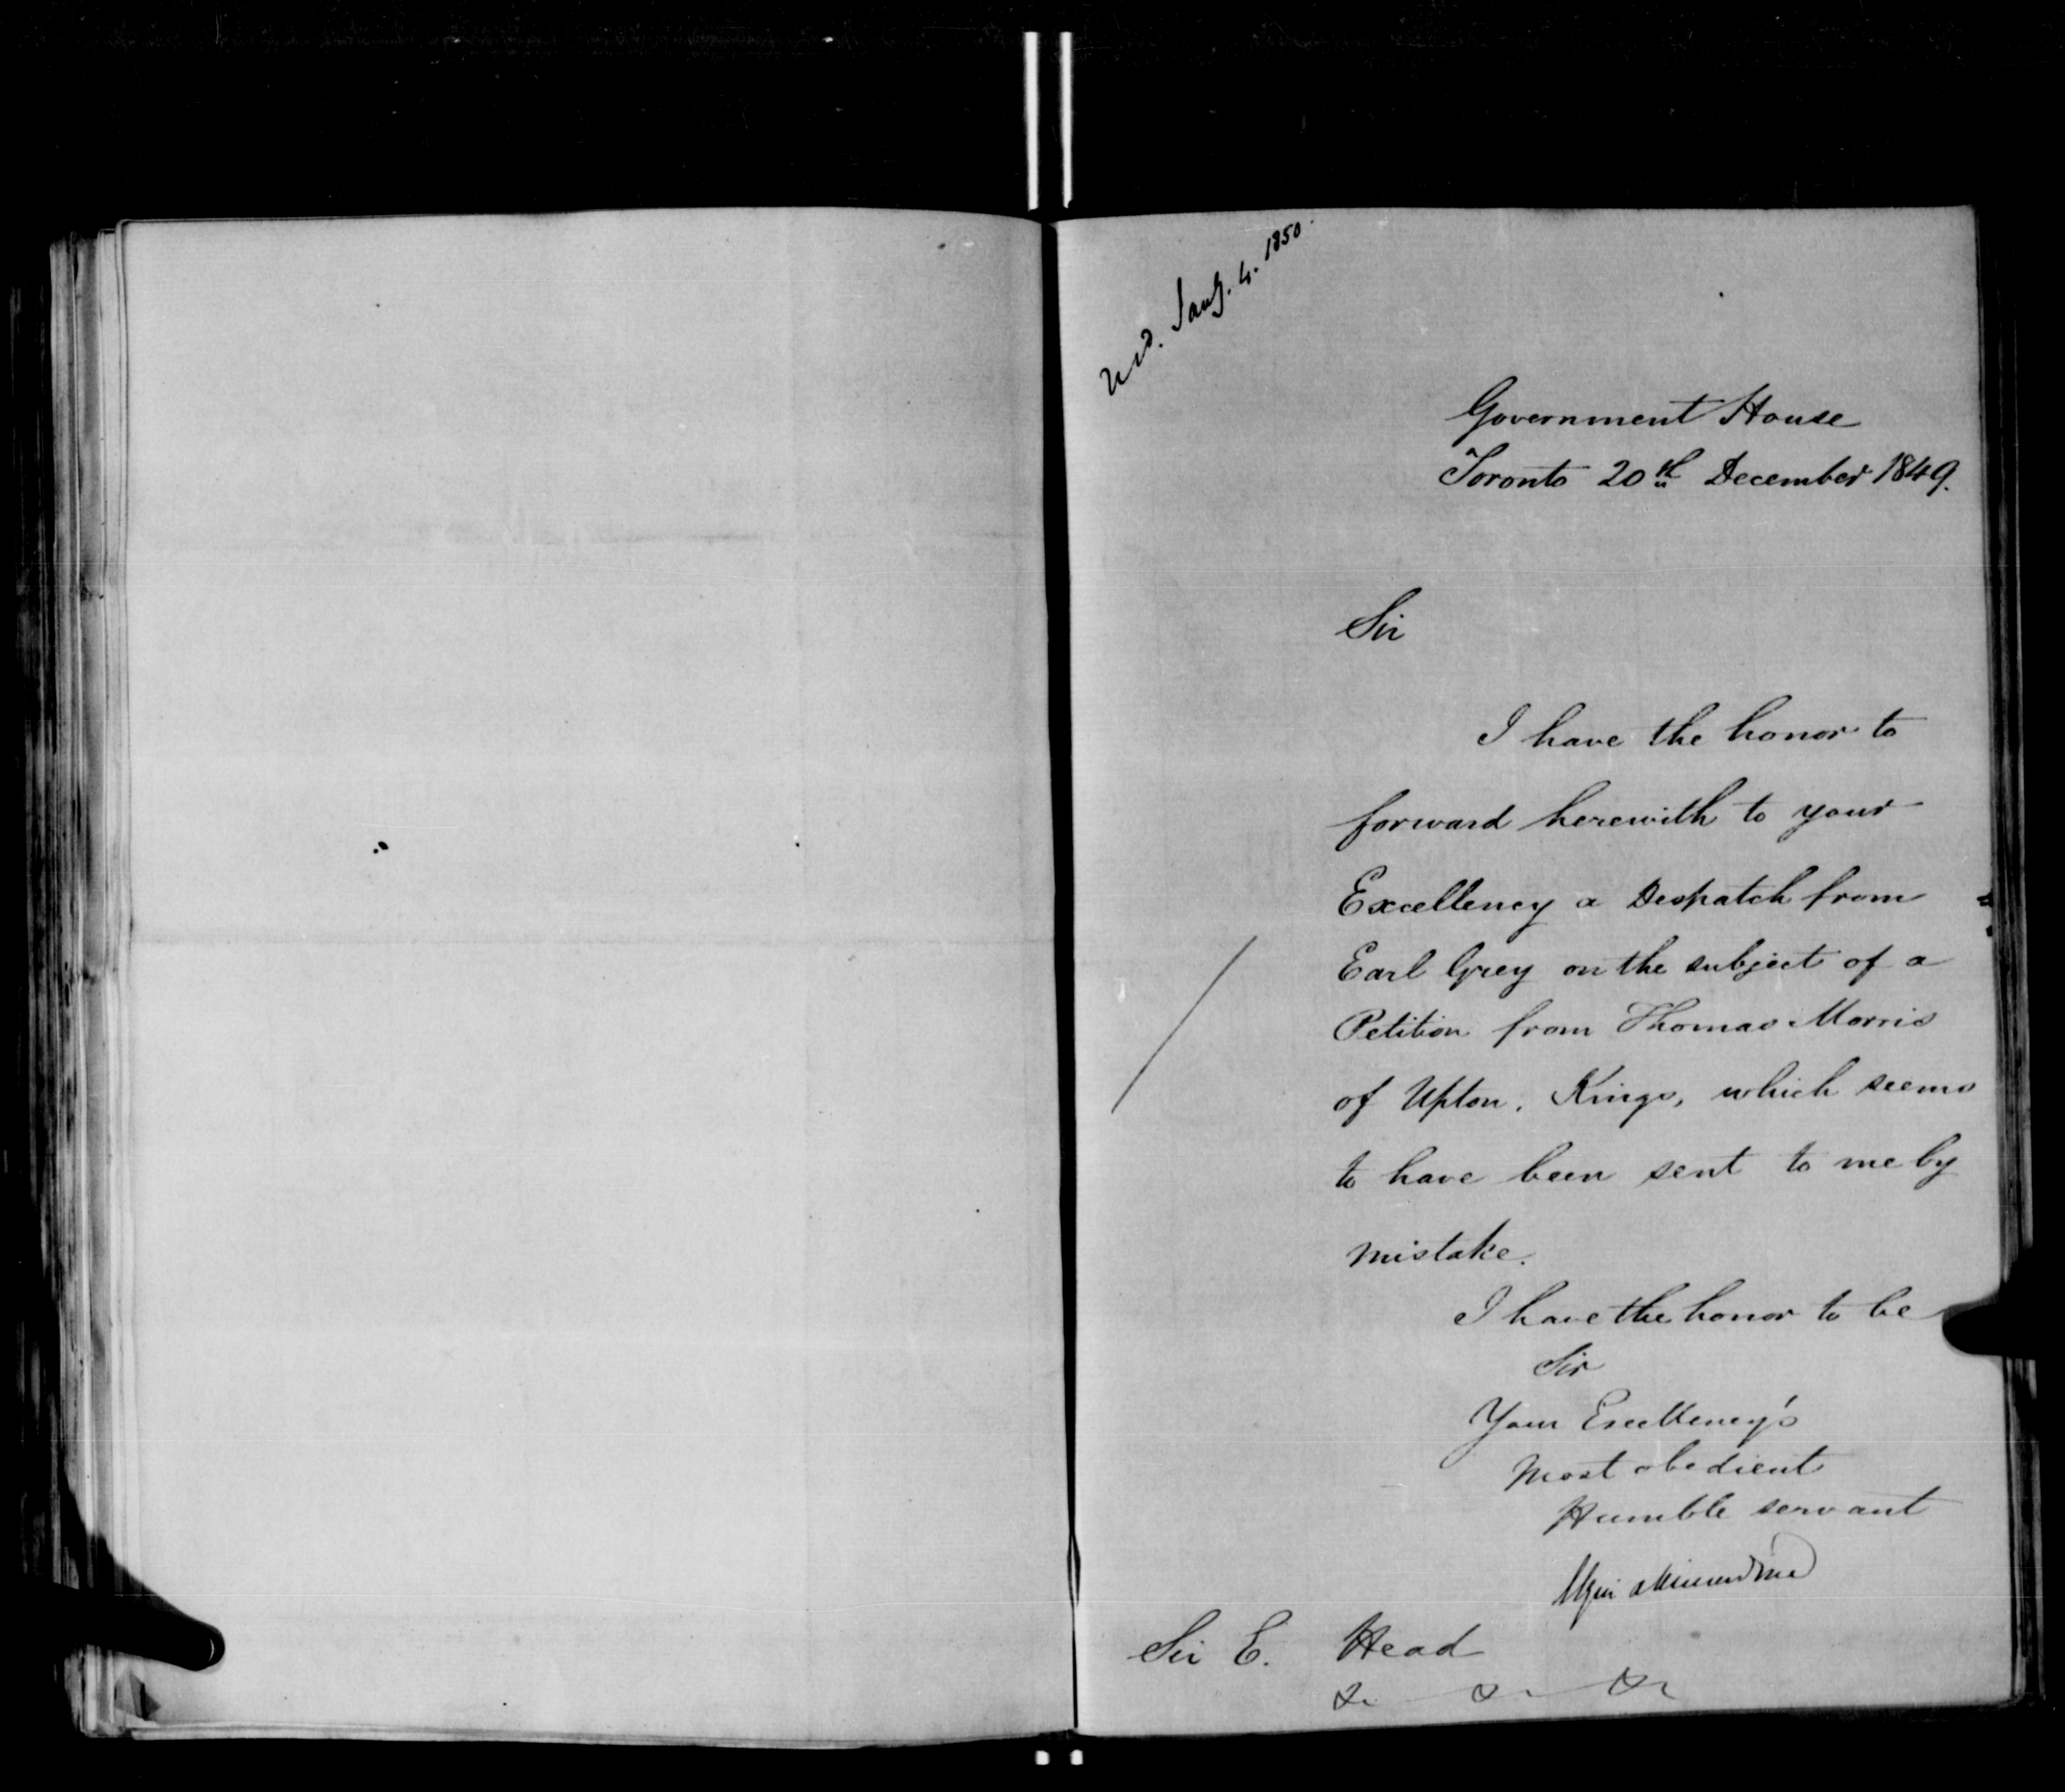 Recd. Jany. 4. 1850.
Government House
Toronto 20th December 1849.
Sir
I have the honor to
forward herewith to your
Excellency a Despatch from
Earl Grey on the subject of a
Petition from Thomas Morris
of Upton, Kings, which seems
to have been sent to me by
mistake.
I have the honor to be
Sir
Your Excellency's
Most obedient
Humble servant
Elgin & Kincardine
Sir E. Head
&c &c &c